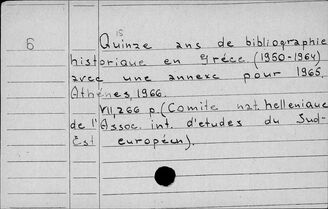 15
6 Quinze ans de bibliographie
historique en Grèce (1950-1964)
avec une annexe pour 1965.
Athènes, 1966.
VII, 266 p. (Comite nat. hellenique
de l'Assoc. int. d'etudes du Sud-
Est européen).